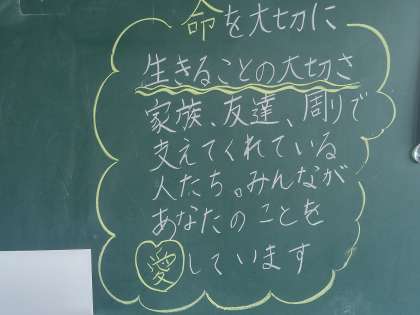 命を大切に
生きることの大切さ
家族、友達、周りで
支えてくれている
人たち。みんなが
あなたのことを
愛しています